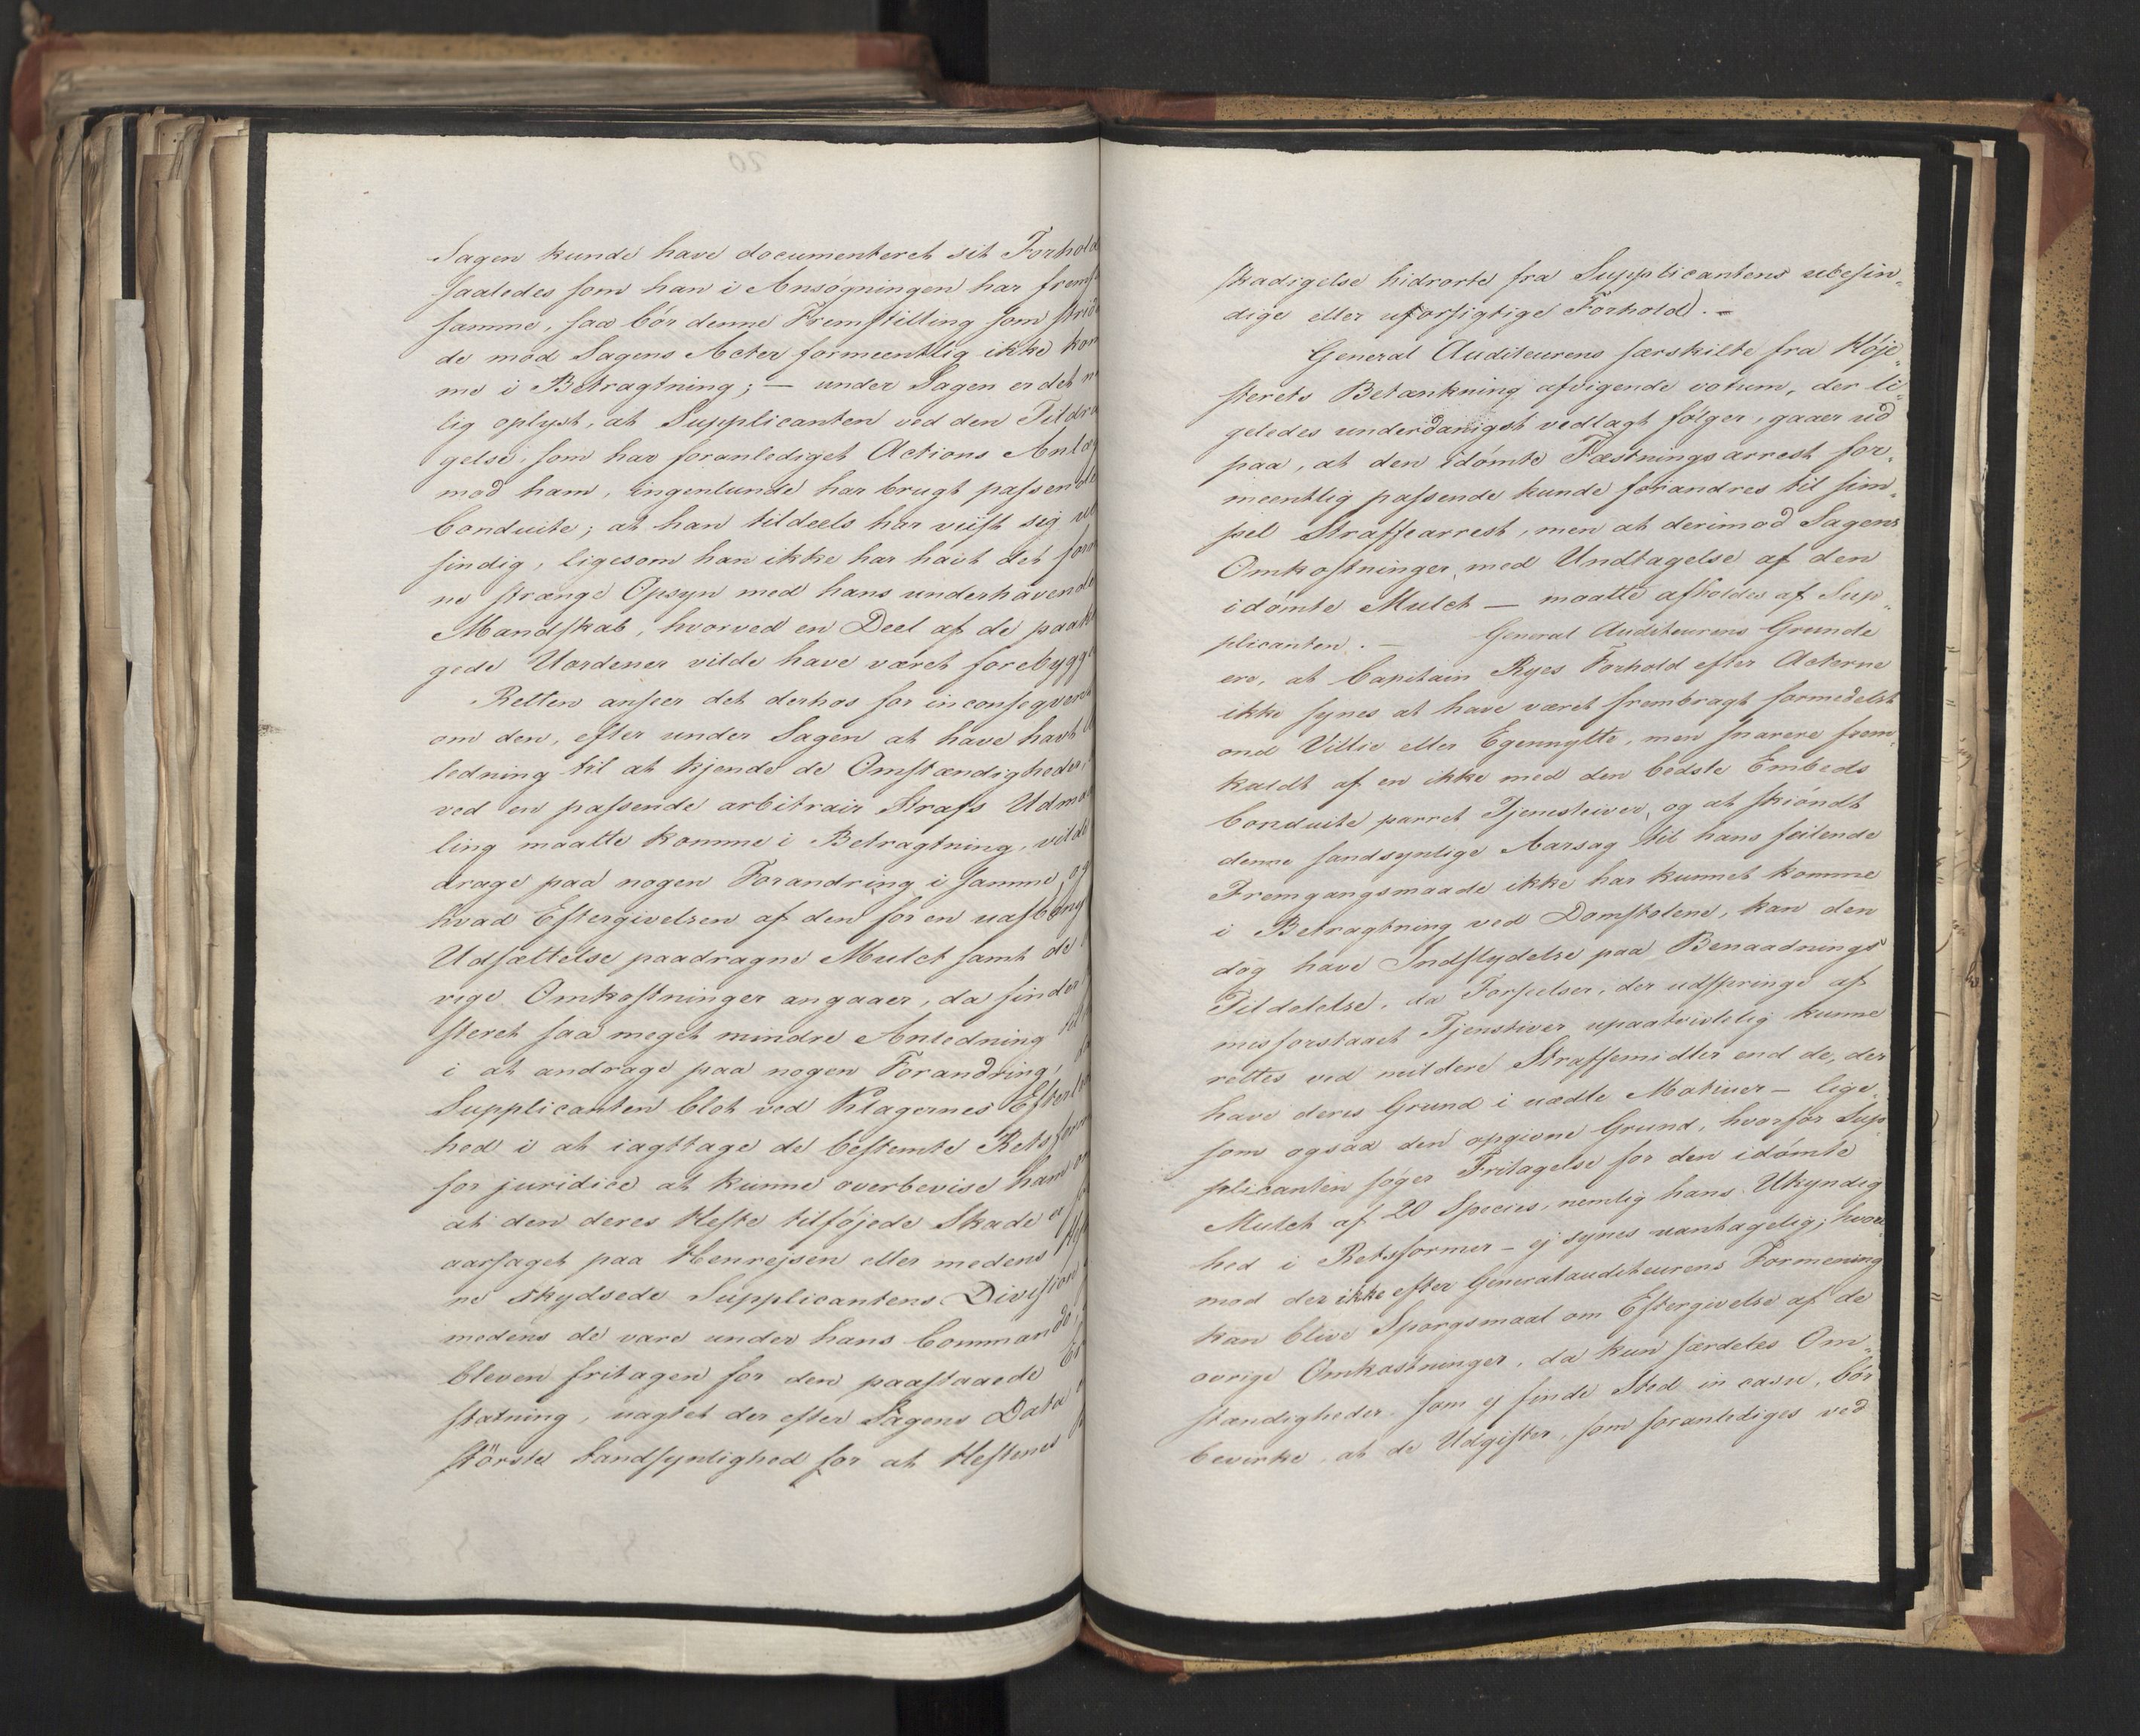 Sagen kunde have documenteret sit Forhold
saaledes som han i Ansøgningen har fremsa
samme, saa bør denne Fremstilling som strid
de mod Sagens Acter formeentlig ikke kom
me i Betragtning; — under Sagen er det n
lig oplyst, at Supplicanten ved den Tildra
gelse, som har foranlediget Actions Anlæg
mod ham, ingenlunde har brugt passende
Conduite; at han tildeels har viist sig ub
sindig, ligesom han ikke har havt det for
ne strænge Opsyn med hans underhavende
Mandskab, hvorved en Deel af de paakla
gede Uordener vilde have været forebygget
Retten anseer det derhos for inconseqvent
om den, efter under Sagen at have havt
ledning til at kjende de Omstændigheder,
ved en passende arbitrair Strafs Udmaa
ling maatte komme i Betragtning, vilde
drage paa nogen Forandring i samme, og
hvad Eftergivelsen af den for en uafbeng
Udsættelse paadragne Mulct samt de
vrige Omkostninger angaaer, da finder
steret saa meget mindre Anledning til
i at andrage paa nogen Forandring,
Supplicanten blot ved Klagernes Efterla
hed i at iagttage de bestemte Retsform
for juridice at kunne overbevise ham om
at den deres Heste tilføjede Skade er
aarsaget paa Henrejsen eller medens
ne skydsede Supplicantens Division
medens de vare under hans Commando,
bleven fritagen for den paastaaede Er
statning, uagtet der efter Sagens Data
største Sandsynlighed for at Hestenes
skadigelse hidrørte fra Supplicantens ubesin„
dige eller uforsigtige Forhold. —
General Auditeurens særskilte fra Høje„
sterets Betænkning afvigende votum, der li„
geledes underdanigst vedlagt følger, gaaer ud
paa, at den idømte Fæstningsarrest for„
meentlig passende kunde forandres til sim„
pel Straffearrest, men at derimod Sagens
Omkostninger, med Undtagelse af den
idømte Mulct — maatte afholdes af Sup„
plicanten. — General Auditeurens Grunde
ere, at Capitain Ryes Forhold efter Acterne
ikke synes at have været frembragt formedelst
ond Villie eller Egennytte, men snarere frem„
kaldt af en ikke med den bedste Embeds
Conduite parret Tjenesteiver, og at skiøndt
denne sandsynlige Aarsag til hans feilende
Fremgangsmaade ikke har kunnet komme
i Betragtning ved Domstolene, kan den
dog have Indflydelse paa Benaadnings
Tildelelse, da Forseelser, der udspringe af
misforstaaet Tjenstiver upaatvivlelig kunne
rettes ved mildere Straffemidler end de, der
have deres Grund i uædle Motiver — lige„
som ogsaa den opgivne Grund, hvorfor Sup„
plicanten søger Fritagelse for den idømte
Mulct af 20 Species, nemlig hans Ukyndig
hed i Retsformer — ej synes uantagelig; hvori
mod der ikke efter Generalauditeurens Formening
kan blive Spørgsmaal om Eftergivelse af de
øvrige Omkostninger, da kun særdeles Om„
stændigheder, som ej finde Sted in casu, bør
bevirke, at de Udgifter, som foranlediges ved